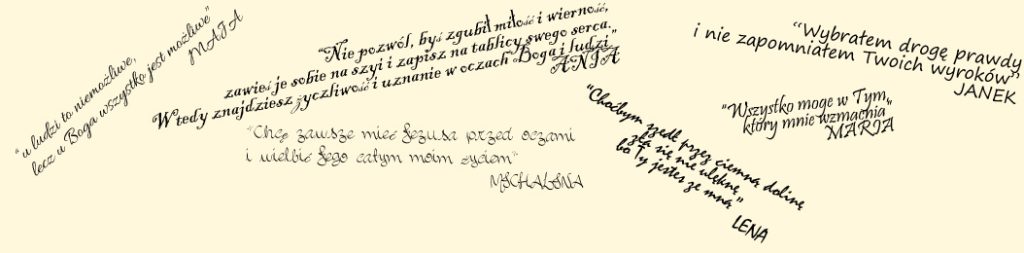 "u ludzi to niemożliwe,
lecz u Boga wszystko jest możliwe"
MAJA
"Nie pozwól, byś zgubił miłość i wierność,
zawieś je sobie na szyi i zapisz na tablicy swego serca.
Wtedy znajdziesz życzliwość i uznanie w oczach Boga i ludzi"
ANIA
"Chcę zawsze mieć Jezusa przed oczami
i wielbić Jego całym moim życiem"
MICHALINA
"Choćbym szedł przez ciemną dolinę
zła się nie ulęknę,
bo Ty jesteś ze mną"
LENA
"Wszystko mogę w Tym,
który mnie wzmacnia"
MARIA
"Wybrałem drogę prawdy
i nie zapomniałem Twoich wyroków"
JANEK